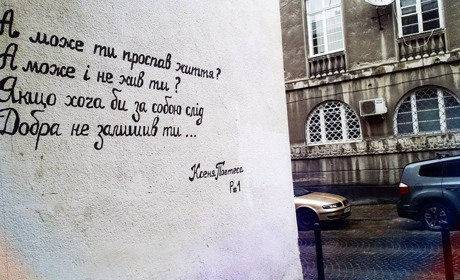 А може ти проспав життя?
А може і не жив ти?
Якщо хога би за собою слід
Добра не залишив ти...
Ксеня Поетеса
Рв1